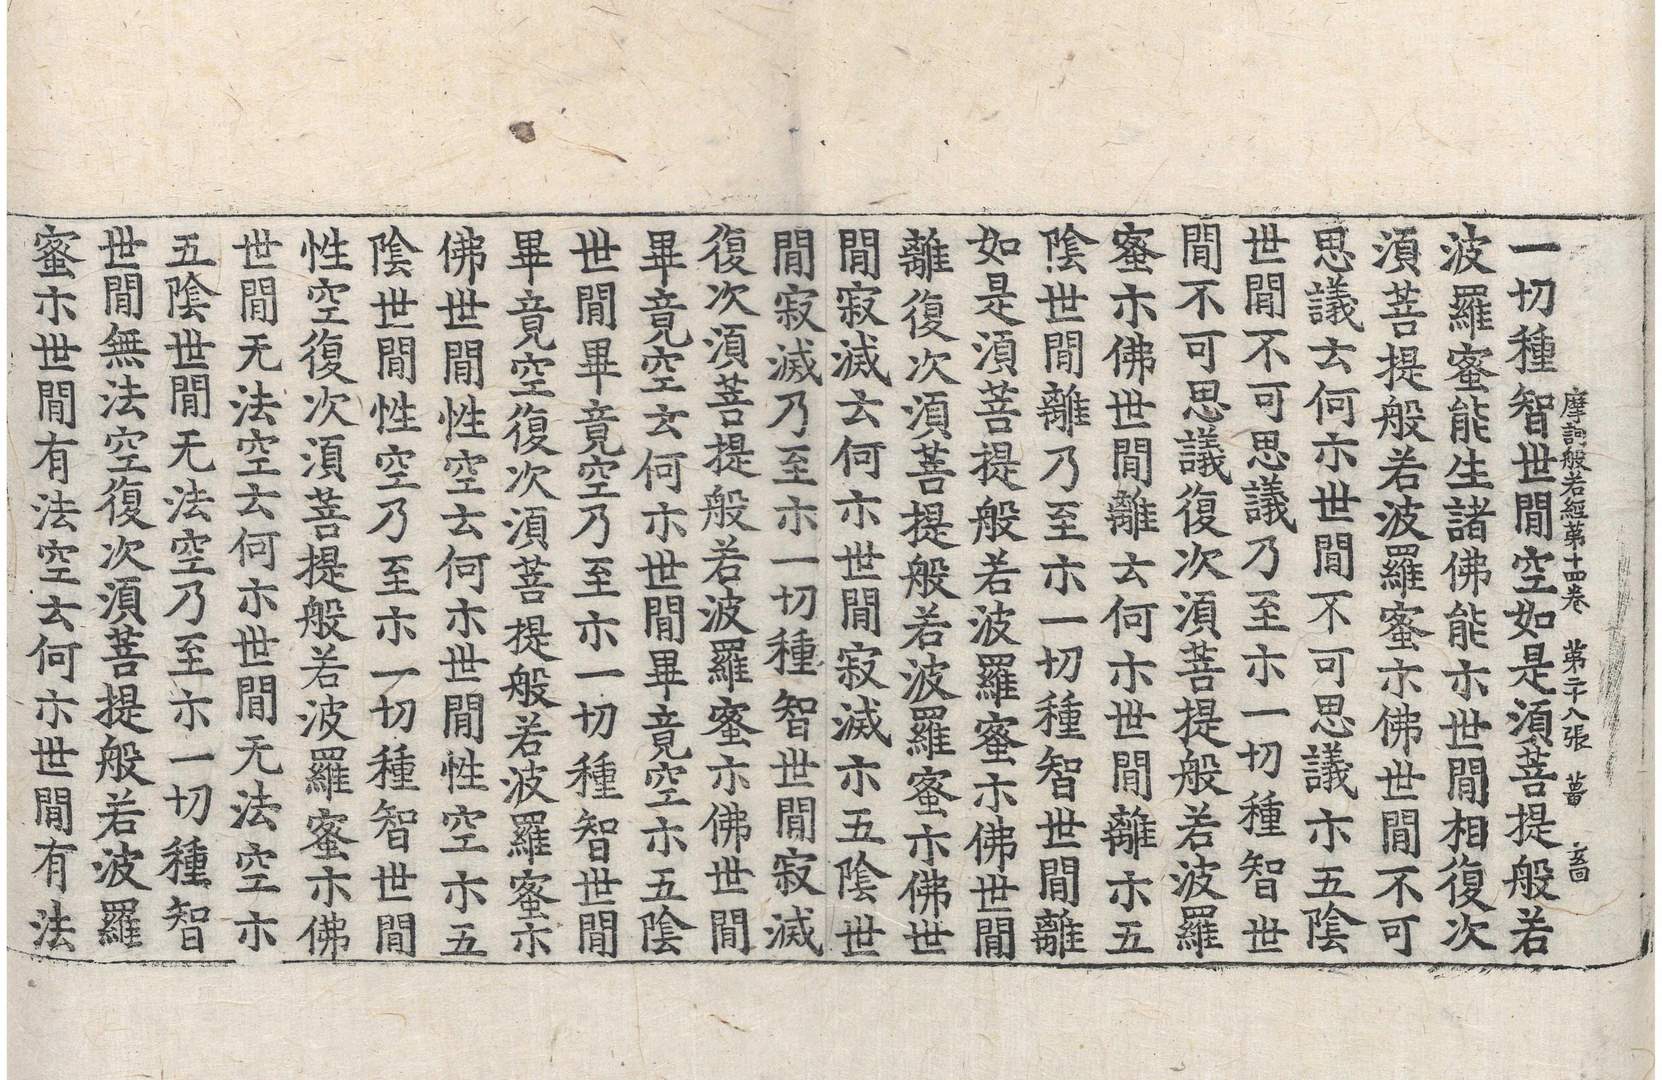 摩訶般若經第十四卷 第二十八張 薑
一切種智世間空如是須菩提般若
波羅蜜能生諸佛能示世間相復次
須菩提般若波羅蜜示佛世間不可
思議云何示世間不可思議示五陰
世間不可思議乃至示一切種智世
間不可思議復次須菩提般若波羅
蜜示佛世間離云何示世間離示五
陰世間離乃至示一切種智世間離
如是須菩提般若波羅蜜示佛世間
離復次須菩提般若波羅蜜示佛世
間寂滅云何示世間寂滅示五陰世
間寂滅乃至示一切種智世間寂滅
復次須菩提般若波羅蜜示佛世間
畢竟空云何示世間畢竟空示五陰
世間畢竟空乃至示一切種智世間
畢竟空復次須菩提般若波羅蜜示
佛世間性空云何示世間性空示五
陰世間性空乃至示一切種智世間
性空復次須菩提般若波羅蜜示佛
世間无法空云何示世間无法空示
五陰世間无法空乃至示一切種智
世間無法空復次須菩提般若波羅
蜜示世間有法空云何示世間有法